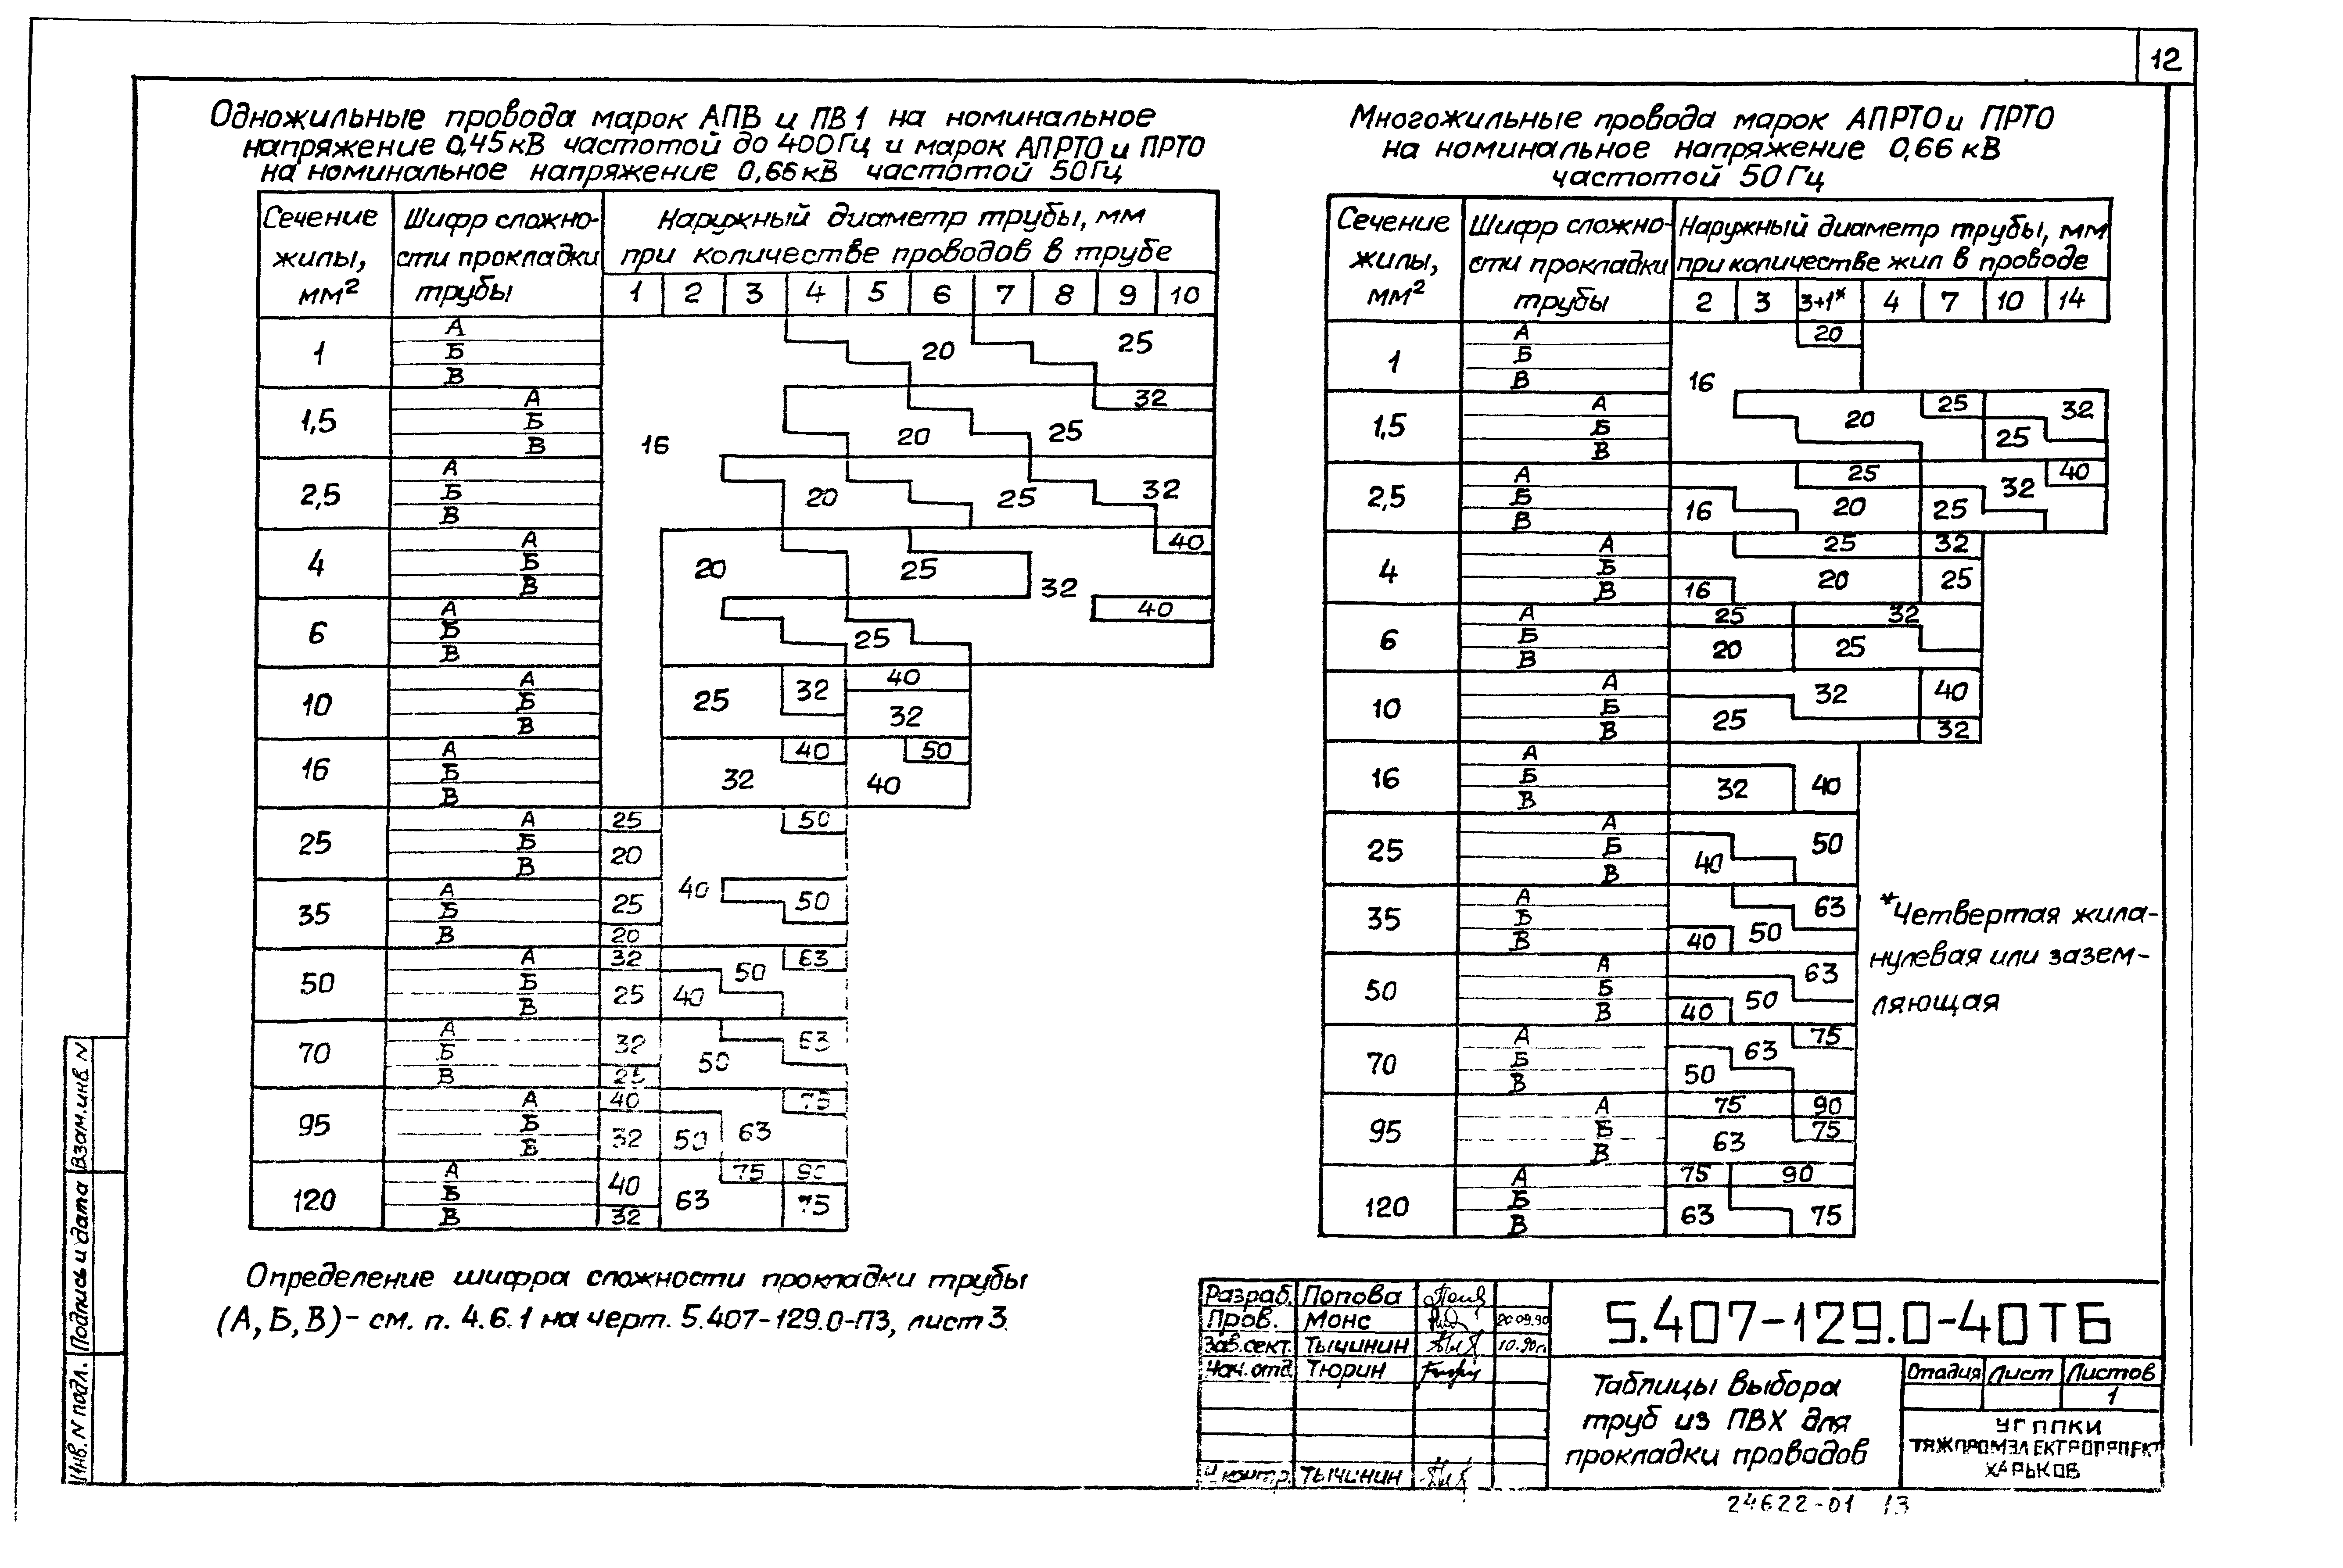 12
Одножильные провода марок АПВ и ПВ1 на номинальное
напряжение 0,45кВ частотой до 400Гц и марок АПРТО и ПРТО
на номинальное напряжение 0,66кВ частотой 50Гц
Сечение жилы, мм² Шифр сложно-сти прокладки трубы Наружный диаметр трубы, мм при количестве проводов в трубе
1 2 3 4 5 6 7 8 9 10
1 А Б В 16 20 25
1,5 А Б В 20 25 32
2,5 А Б В 20 25 32
4 А Б В 20 25 32 40
6 А Б В 25 40
10 А Б В 25 32 40 32
16 А Б В 32 40 40 50
25 А Б В 25 20 40 50
35 А Б В 25 20 50
50 А Б В 32 25 40 50 63
70 А Б В 32 25 50 63
95 А Б В 40 32 50 63 75
120 А Б В 40 32 63 75 90 75
Определение шифра сложности прокладки трубы
(А, Б, В) - см. п. 4.6.1 на черт. 5.407-129.0-ПЗ, лист 3.
Многожильные провода марок АПРТО и ПРТО
на номинальное напряжение 0,66 кВ
частотой 50 Гц
Сечение жилы, мм² Шифр сложно-сти прокладки трубы Наружный диаметр трубы, мм при количестве жил в проводе
2 3 3+1* 4 7 10 14
1 А Б В 16 20
1,5 А Б В 20 25 25 32
2,5 А Б В 16 25 20 25 32 40
4 А Б В 16 25 20 32 25
6 А Б В 25 20 32 25
10 А Б В 25 32 40 32
16 А Б В 32 40
25 А Б В 40 50
35 А Б В 40 50 63
50 А Б В 40 50 63
70 А Б В 50 63 75
95 А Б В 75 63 90 75
120 А Б В 75 63 90 75
*Четвертая жила-
нулевая или зазем-
ляющая
Взам.инв. N
Подпись и дата
Инв. N подл.
Разраб. Попова
Пров. Монс 20 09.90
Зав.сект. Тычинин 10.90г.
Нач.отд. Тюрин
Н контр. Тычинин
5.407-129.0-40ТБ
Таблицы выбора
труб из ПВХ для
прокладки проводов
Стадия Лист Листов
1
УГППКИ
ТЯЖПРОМЭЛЕКТРОПРОЕКТ
ХАРЬКОВ
24622-01 13